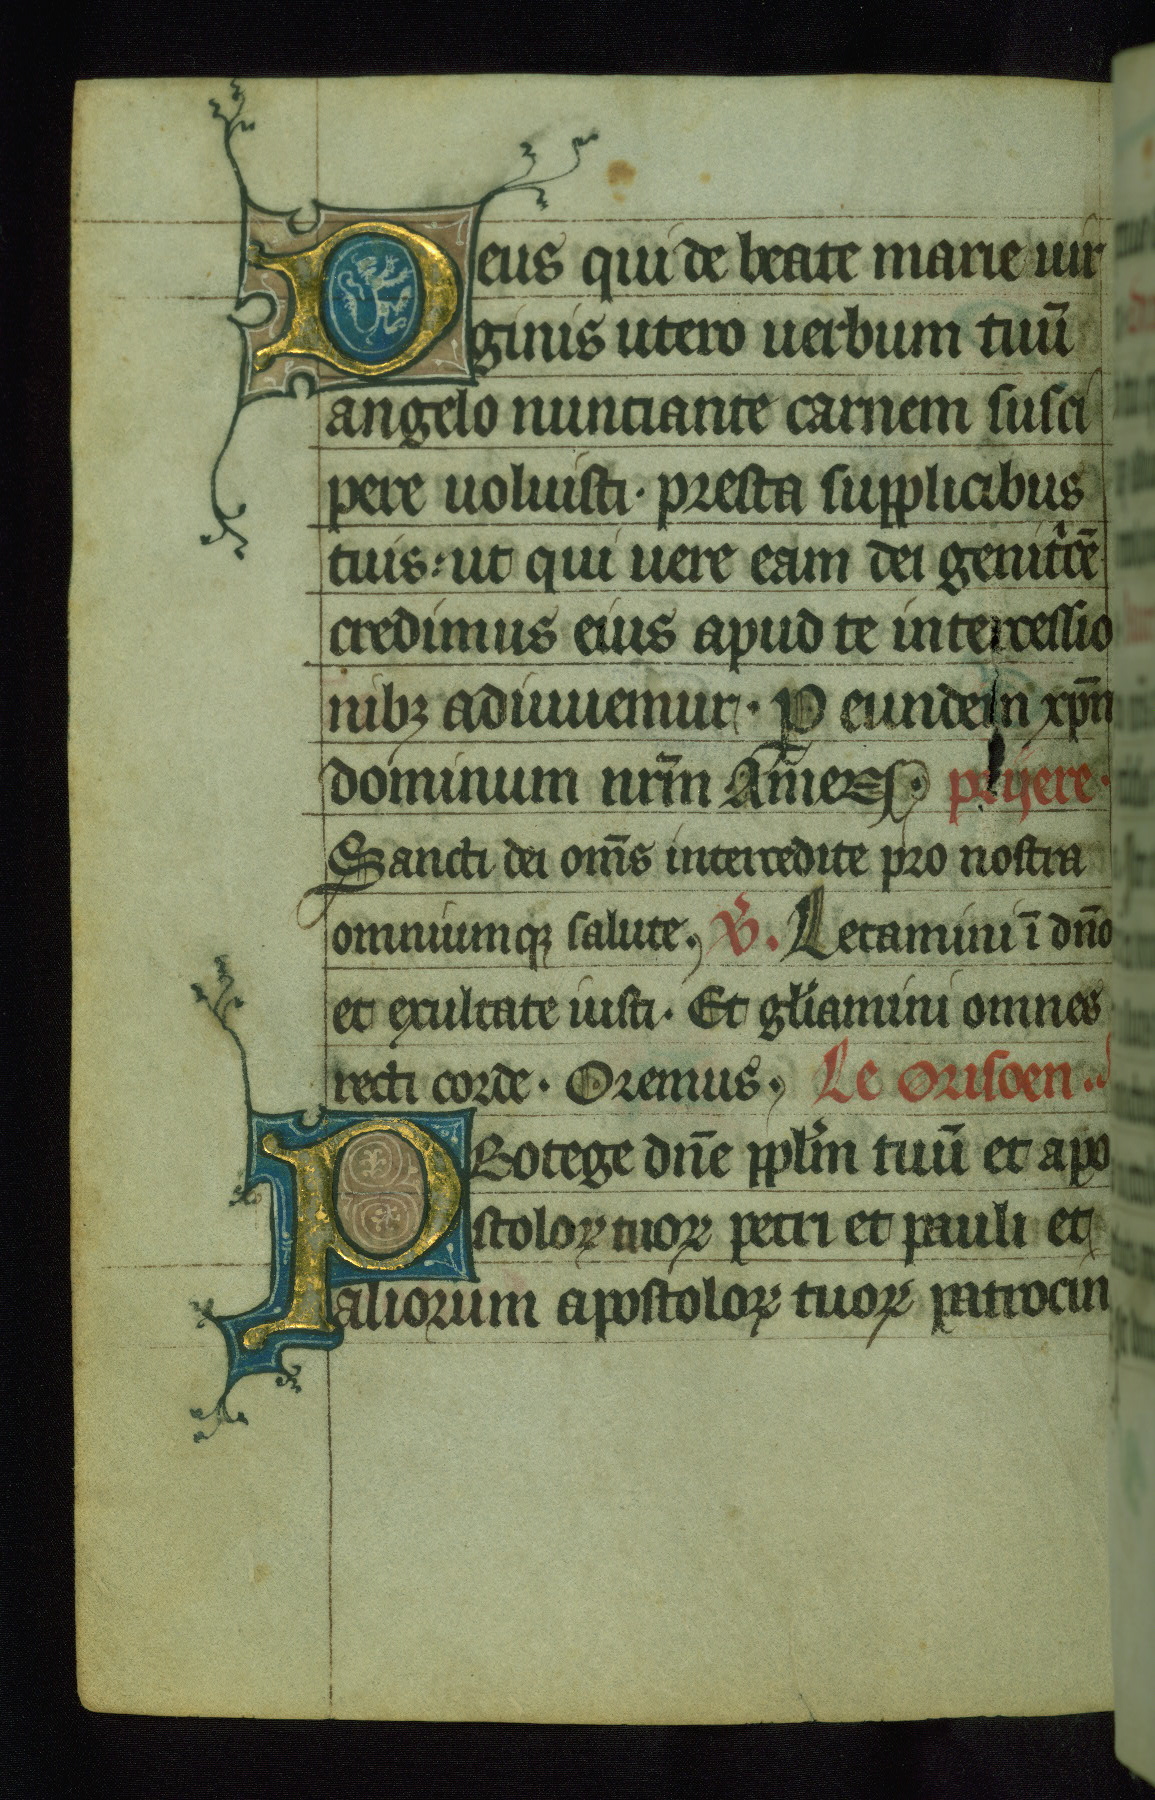 Deus qui de beate marie uir
ginis utero uerbum tuū
angelo nunciante carnem susci
pere uoluisti · presta supplicibus
tuis : ut qui uere eam dei genitͥcē
credimus eius apud te intercessio
nibꝫ adiuuemur · P eundem xp̄m
dominum nr̄m Am̄en · prijere ·
Sancti dei om̄s intercedite pro nostra
omniumqꝫ salute. ℣. Letamini ī dn̄o
et exultate iusti · Et gl̄iamini omnes
recti corde · Oremus. Le orisoen ..
PRotege dn̄e ppl̄m tuū et apo
stoloꝝ tuoꝝ petri et pauli et
aliorum apostoloꝝ tuoꝝ patrocin